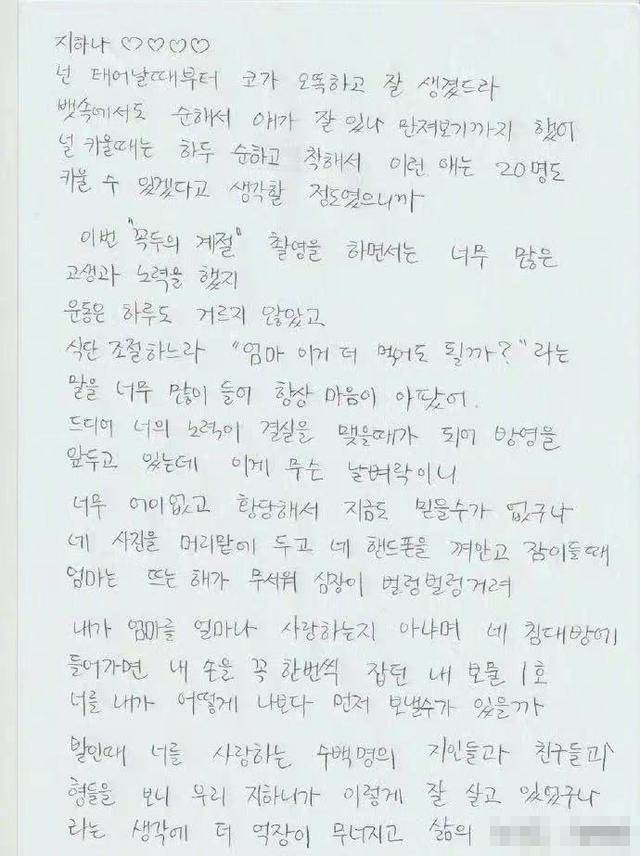 지하나 ♡♡♡♡
넌 태어날때부터 코가 오똑하고 잘 생겼드라
뱃속에서도 순해서 애가 잘 있나 만져보기까지 했어
널 키울때는 하두 순하고 착해서 이런 애는 20명도
키울 수 있겠다고 생각할 정도였으니까
이번 "꼭두의 계절" 촬영을 하면서는 너무 많은
고생과 노력을 했지
운동은 하루도 거르지 않았고
식단 조절하느라 "엄마 이거 더 먹어도 될까?" 라는
말을 너무 많이 들어 항상 마음이 아팠어.
드디어 너의 노력이 결실을 맺을때가 되어 방영을
앞두고 있는데 이게 무슨 날벼락이니
너무 어이없고 황당해서 지금도 믿을수가 없구나
네 사진을 머리맡에 두고 네 핸드폰을 껴안고 잠이들때
엄마는 뜨는 해가 무서워 심장이 벌렁벌렁거려
내가 엄마를 얼마나 사랑하는지 아냐며 네 침대방에
들어가면 내 손을 꼭 한번씩 잡던 내 보물 1호
너를 내가 어떻게 나보다 먼저 보낼수가 있을까
발인때 너를 사랑하는 수백명의 지인들과 친구들과
형들을 보니 우리 지하니가 이렇게 잘 살고 있었구나
라는 생각에 더 억장이 무너지고 삶의